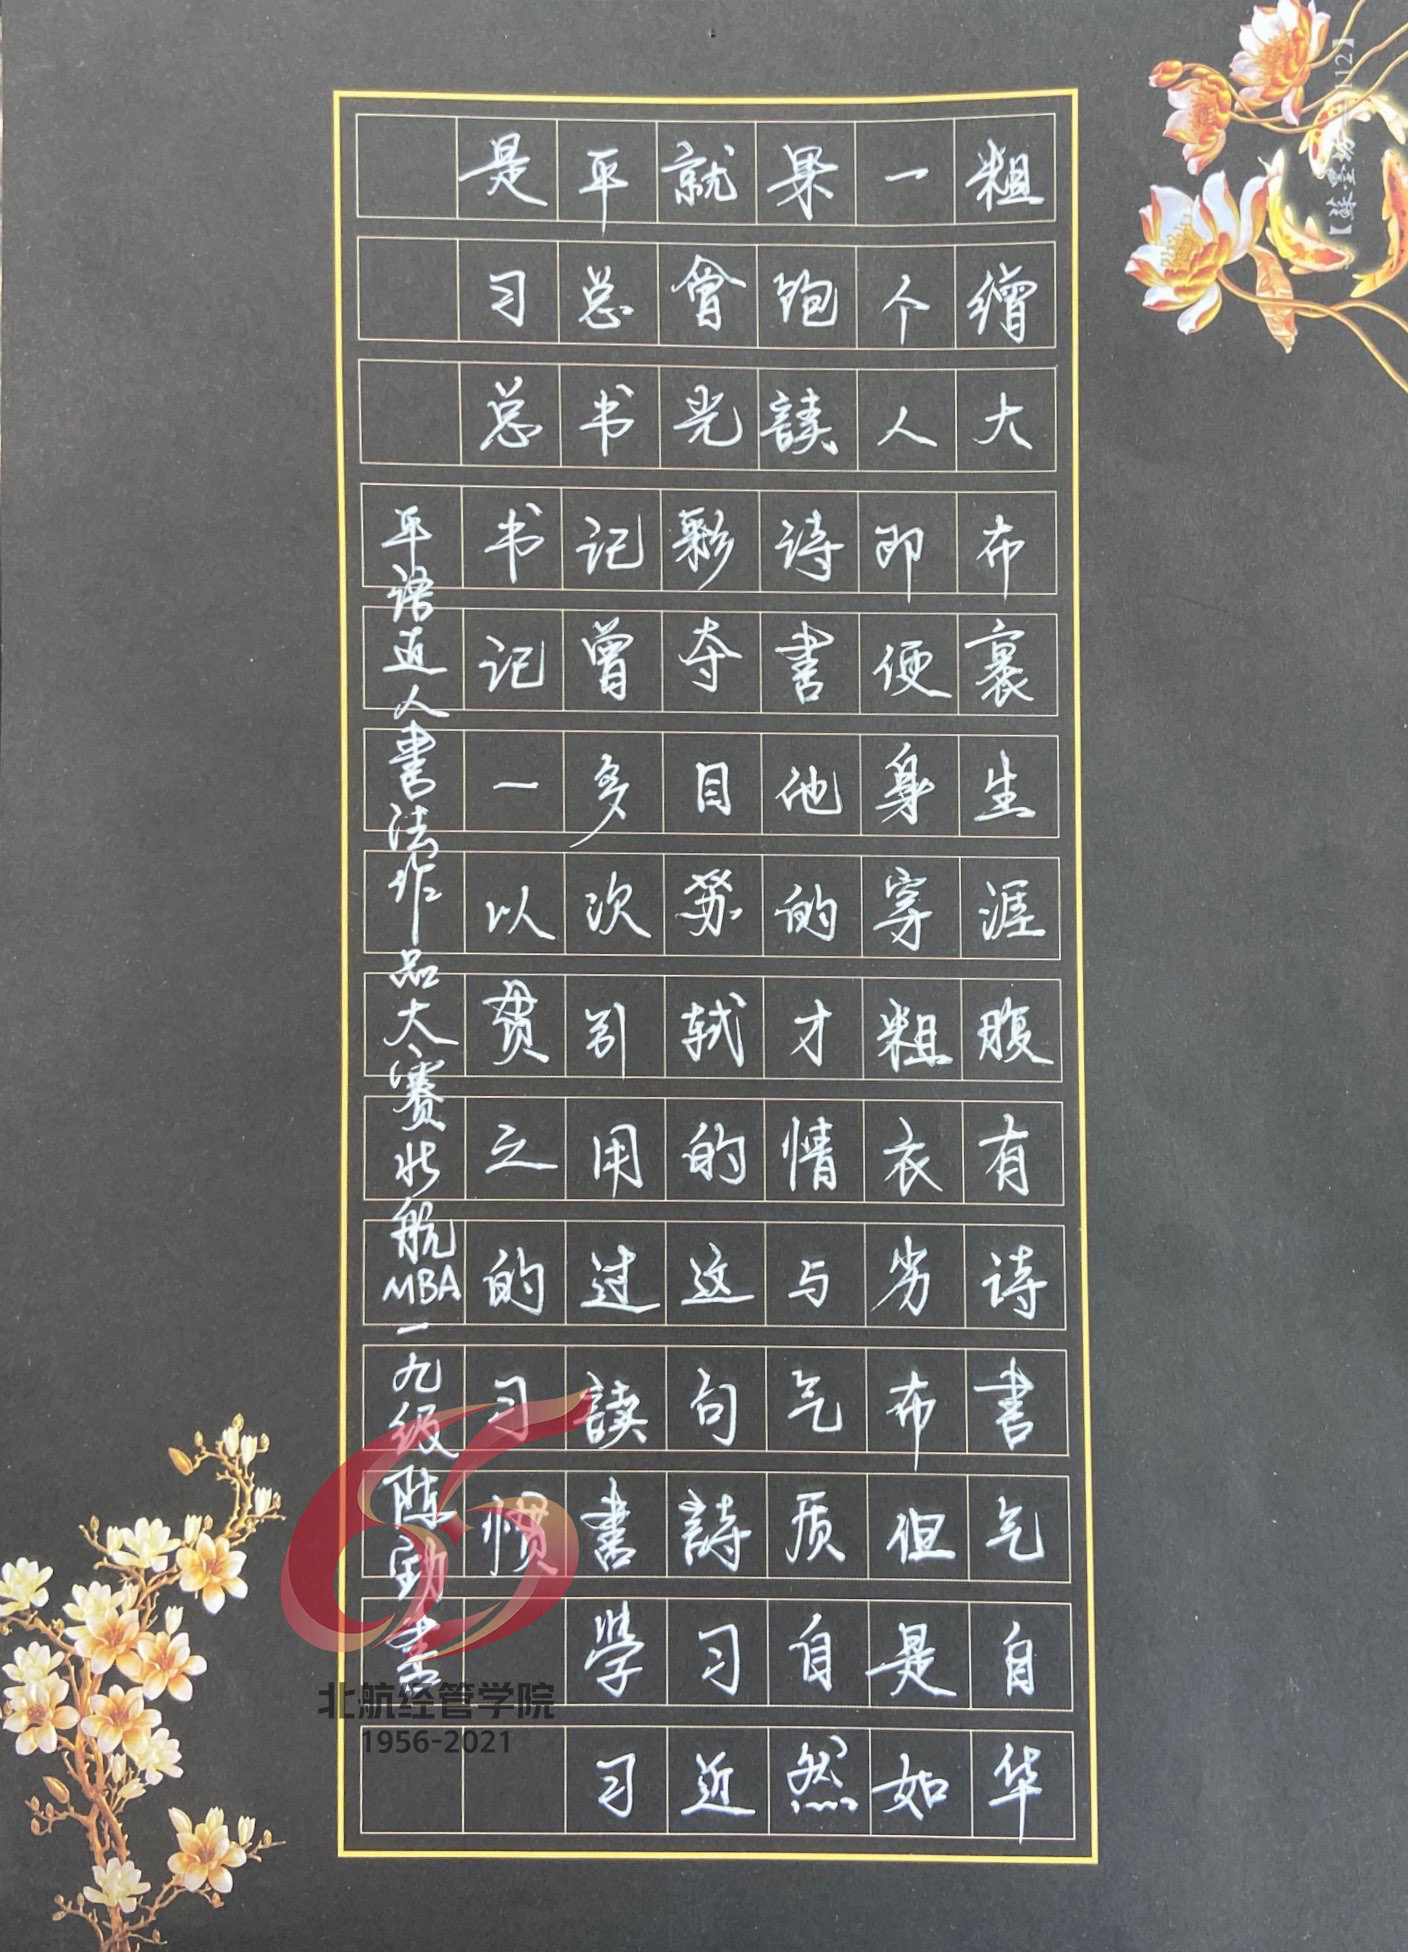 粗缯大布裹生涯腹有诗書气自华
一个人即便身穿粗衣劣布但是如
果饱讀诗書他的才情与气质自然
就會光彩夺目苏轼的这句詩习近
平总书记曾多次引用过讀書學习
是习总书记一以贯之的习惯
平语近人書法作品大赛北航MBA一九级陈書
北航经管学院
1956-2021